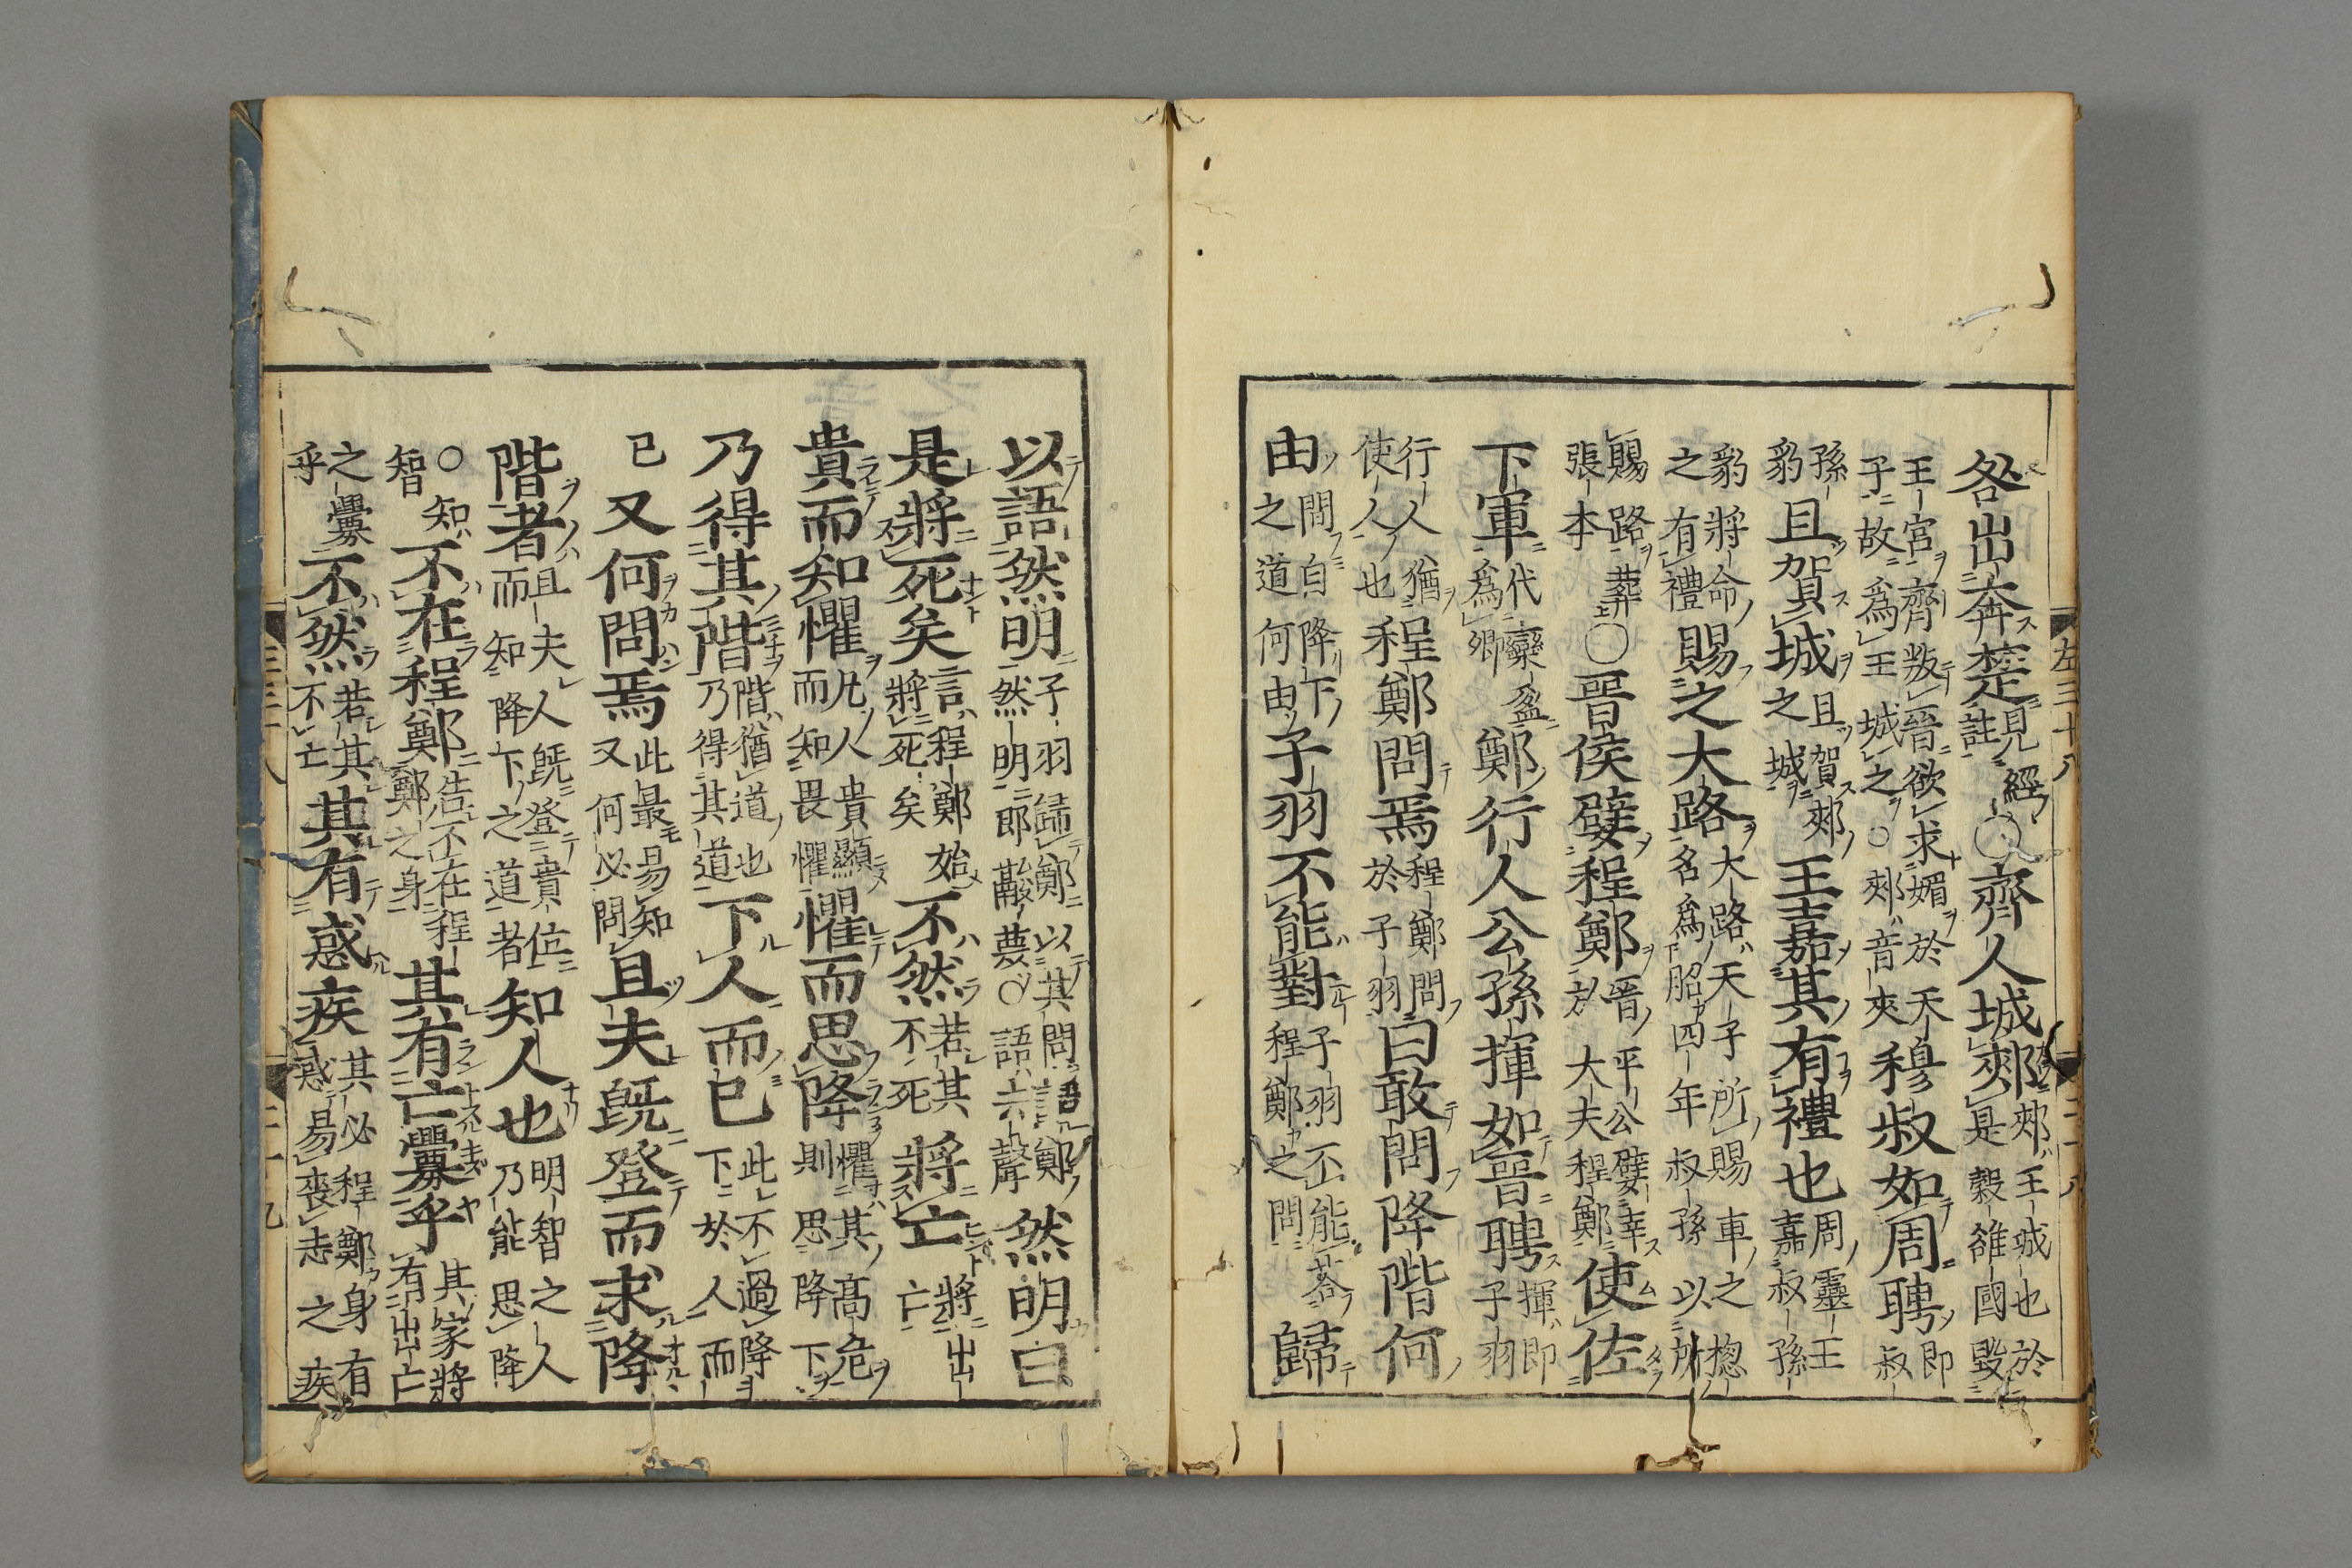 咎出奔楚見經註○齊人城郟郟王城也於是穀雒國毀
王宮齊叛晉欲求媚於天子故為王城之○郟音夾穆叔如周聘即叔
孫豹且賀城且賀郟之城王嘉其有禮也周靈王嘉叔孫
豹將命之有禮賜之大路大路天子所賜車之揔名為昭四年叔孫以所
賜路葬張本○晉侯嬖程鄭晉平公嬖幸於大夫程鄭使佐
下軍代欒盈為卿鄭行人公孫揮如晉聘揮即子羽
行人猶使人也程鄭問焉程鄭問於子羽曰敢問降階何
由問自降下之道何由子羽不能對子羽不能荅程鄭之問歸
以語然明子羽歸鄭以其問語鄭然明即鬷蔑○語六聲然明曰
是將死矣言程鄭將死矣始不然若其不死將亡將出亡
貴而知懼凡人貴顯而知畏懼懼而思降懼其高危則思降下
乃得其階階猶道也乃得其道下人而已此不過降下於人而
已又何問焉此最易知又何必問且夫既登而求降
階者且夫人既登貴位而知降下之道者知人也明智之人乃能思降
○知智不在程鄭告不在程鄭之身其有亡釁乎其家將有出亡
之釁乎不然若其不亡其有惑疾其必程鄭身有惑易喪志之疾
左三十八
二十八
二十九